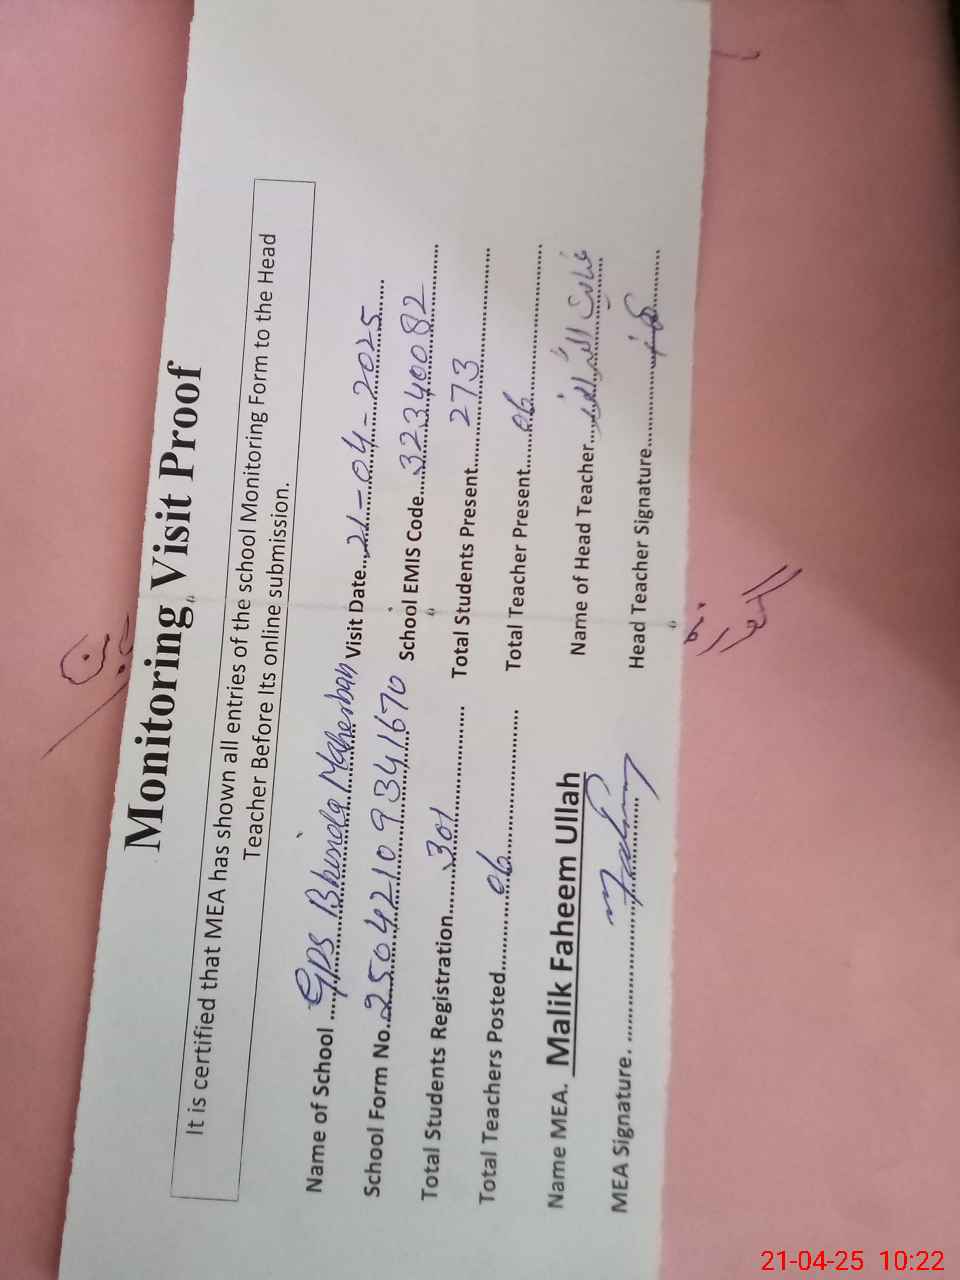 Monitoring Visit Proof
It is certified that MEA has shown all entries of the school Monitoring Form to the Head
Teacher Before Its online submission.
Name of School ........GPS Bhinda Maherban Visit Date...21-04-2025......
School Form No..25042109341670 School EMIS Code....32340082........
Total Students Registration......301.................. Total Students Present......273..................
Total Teachers Posted..........06.......................... Total Teacher Present......06..........................
Name MEA. Malik Faheem Ullah Name of Head Teacher...... عنایت اللہ
MEA Signature. .................................... Head Teacher Signature....................................
21-04-25 10:22